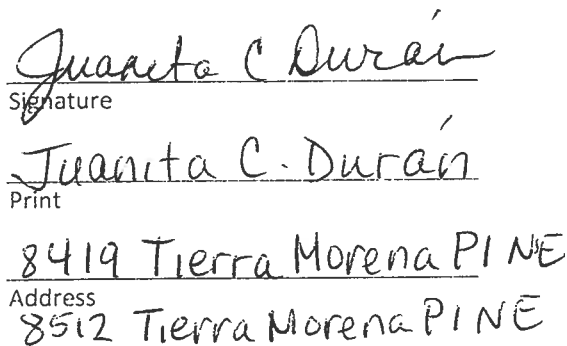 Juanita C Durán
Signature
Juanita C. Durán
Print
8419 Tierra Morena Pl NE
Address
8512 Tierra Morena Pl NE